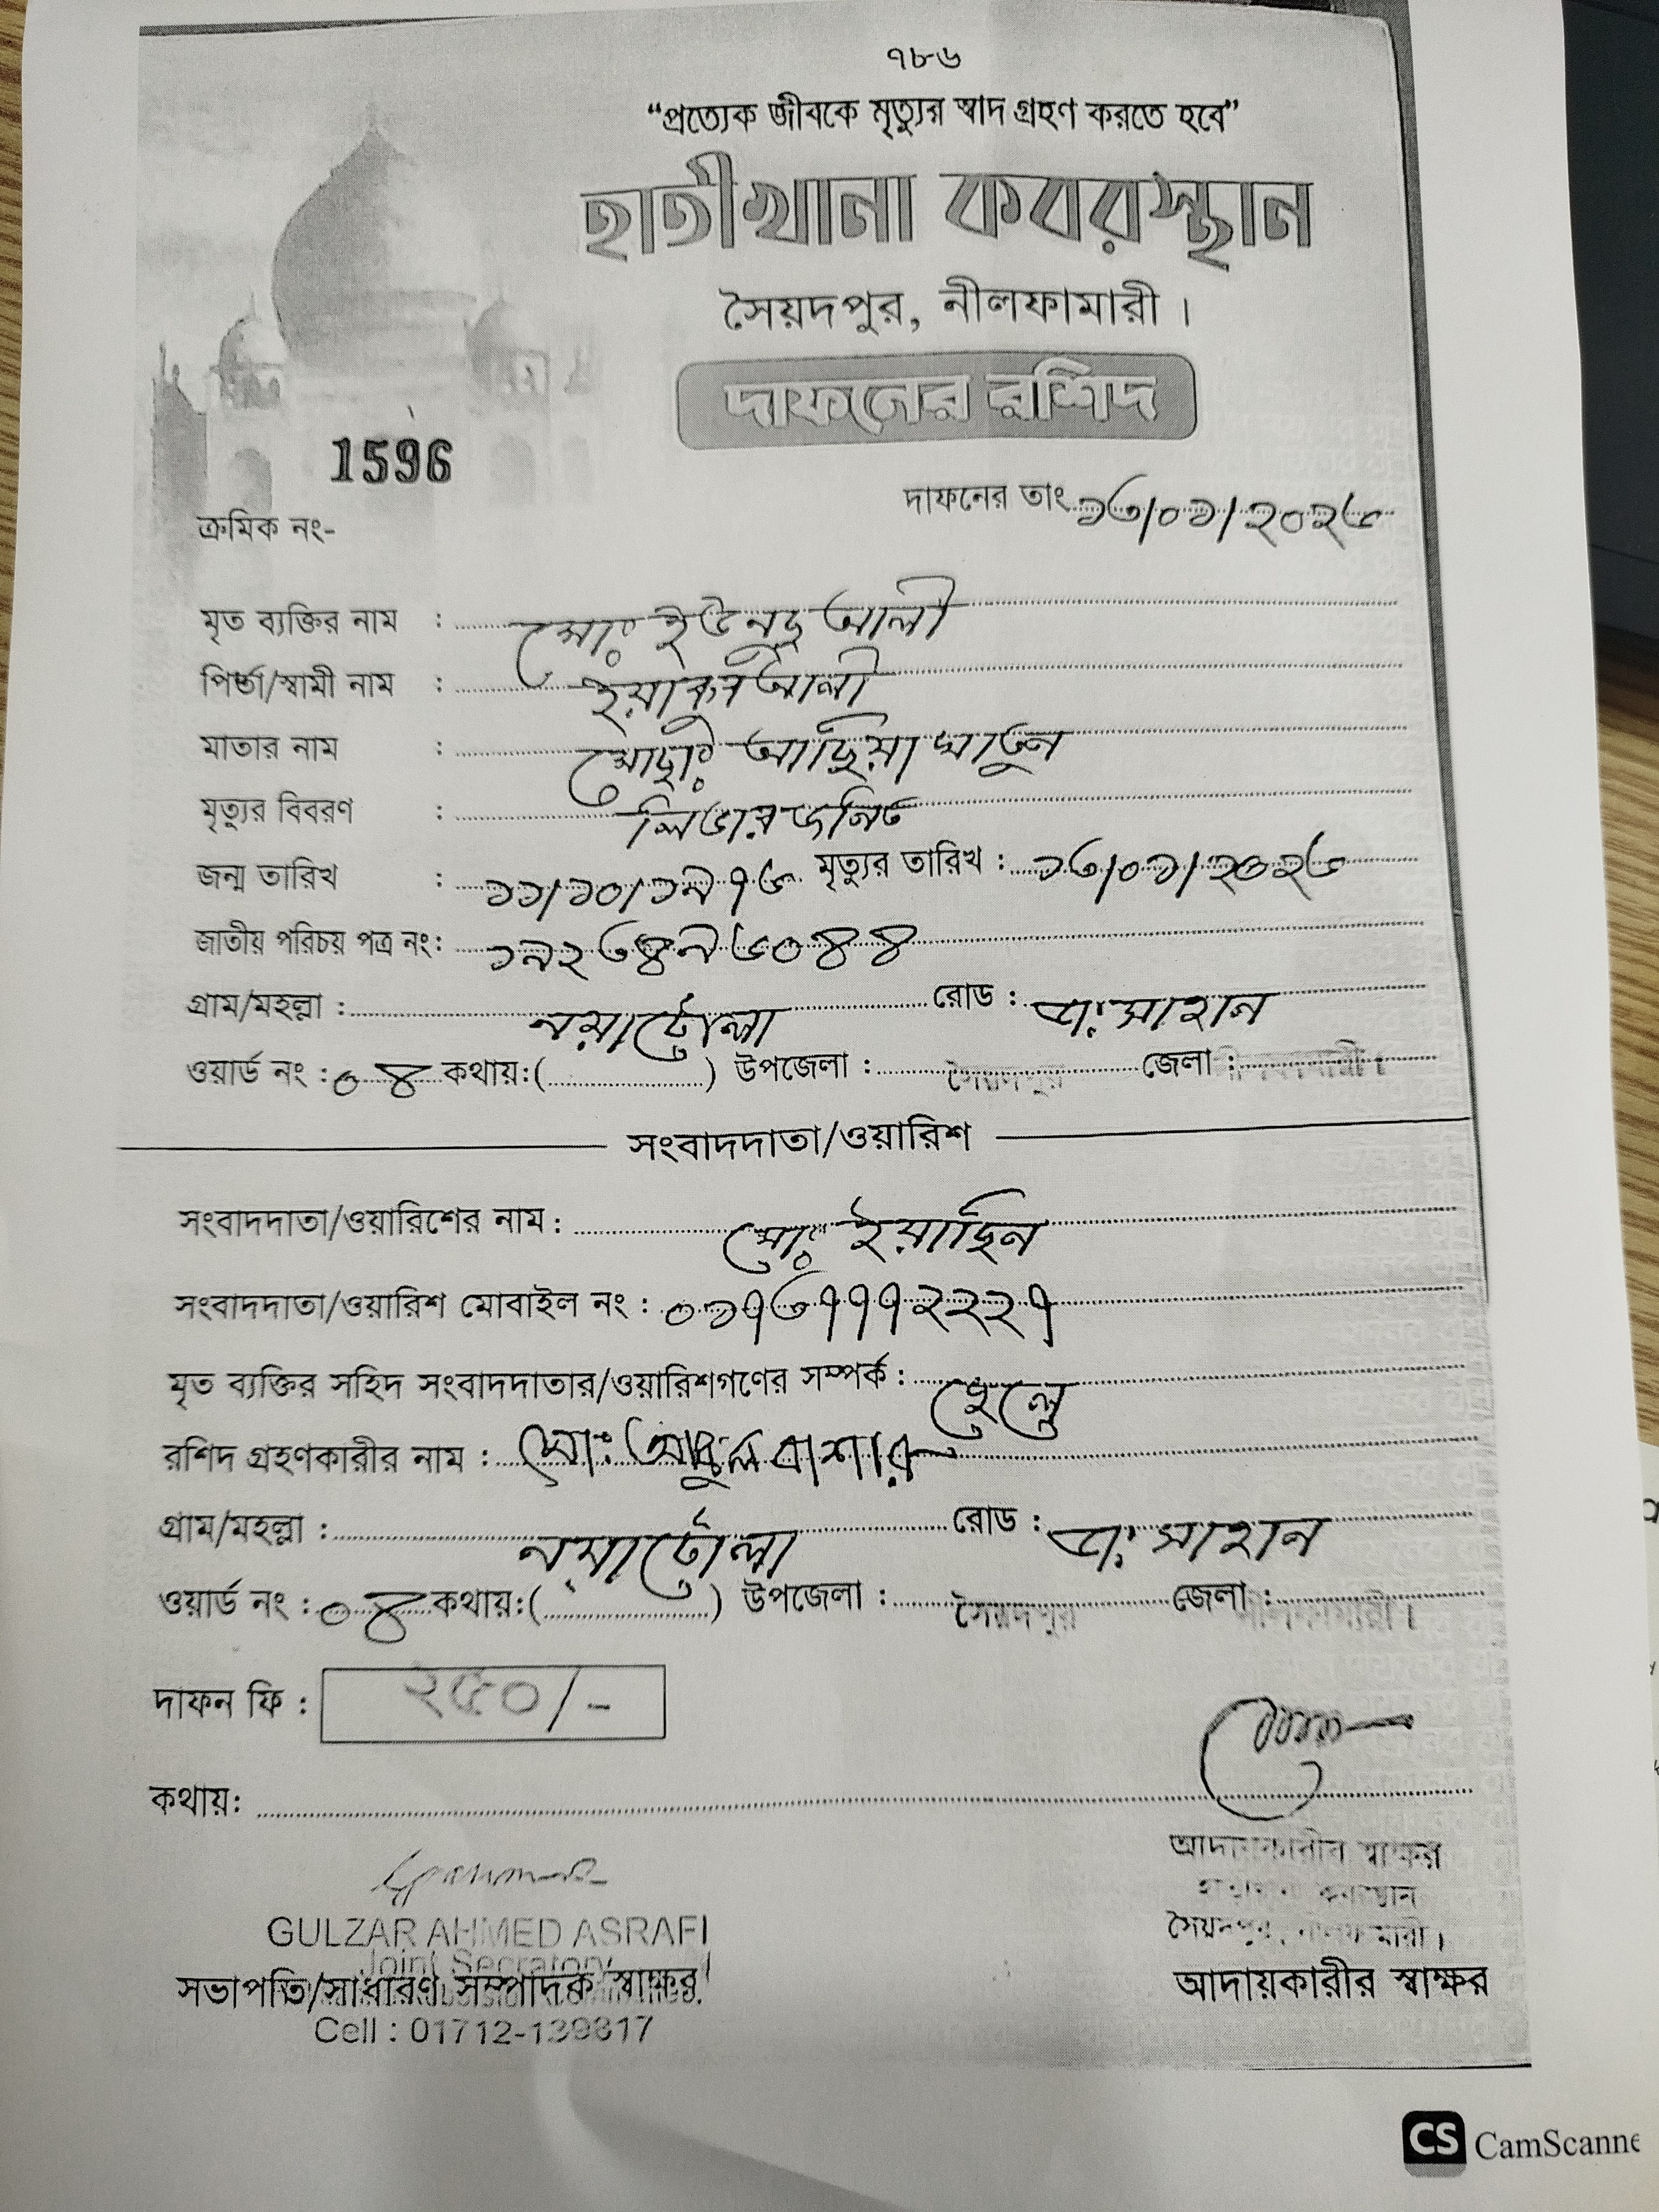 ৭৮৬
“প্রত্যেক জীবকে মৃত্যুর স্বাদ গ্রহণ করতে হবে”
হাতীখানা কবরস্থান
সৈয়দপুর, নীলফামারী।
দাফনের রশিদ
1596
দাফনের তাং ১৩/০১/২০২৬
ক্রমিক নং-
মৃত ব্যক্তির নাম : মোং ইউনুছ আলী
পিতা/স্বামী নাম : ইয়াকুব আলী
মাতার নাম : মোছাং আছিয়া খাতুন
মৃত্যুর বিবরণ : লিভার জনিত
জন্ম তারিখ : ১১/১০/১৯৭৬ মৃত্যুর তারিখ : ১৩/০১/২০২৬
জাতীয় পরিচয় পত্র নং: ১৯২৩৪৯৬০৪৪
গ্রাম/মহল্লা : নয়াটোলা রোড :
ওয়ার্ড নং : ০৪ কথায়:( ) উপজেলা : সৈয়দপুর জেলা : নীলফামারী।
সংবাদদাতা/ওয়ারিশ
সংবাদদাতা/ওয়ারিশের নাম : মোং ইয়াছিন
সংবাদদাতা/ওয়ারিশ মোবাইল নং : ০১৭৩৭৭৭২২২৭
মৃত ব্যক্তির সহিদ সংবাদদাতার/ওয়ারিশগণের সম্পর্ক : ছেলে
রশিদ গ্রহণকারীর নাম : মো: আবুল বাশার
গ্রাম/মহল্লা : নয়াটোলা রোড :
ওয়ার্ড নং : ০৪ কথায়:( ) উপজেলা : সৈয়দপুর জেলা : নীলফামারী।
দাফন ফি : ২৫০/-
কথায়:
আদায়কারীর স্বাক্ষর
হাতীখানা কবরস্থান
সৈয়দপুর, নীলফামারী।
GULZAR AHMED ASRAFI
Joint Secratory
সভাপতি/সাধারণ সম্পাদক স্বাক্ষর
আদায়কারীর স্বাক্ষর
Cell : 01712-139817
CS CamScanne